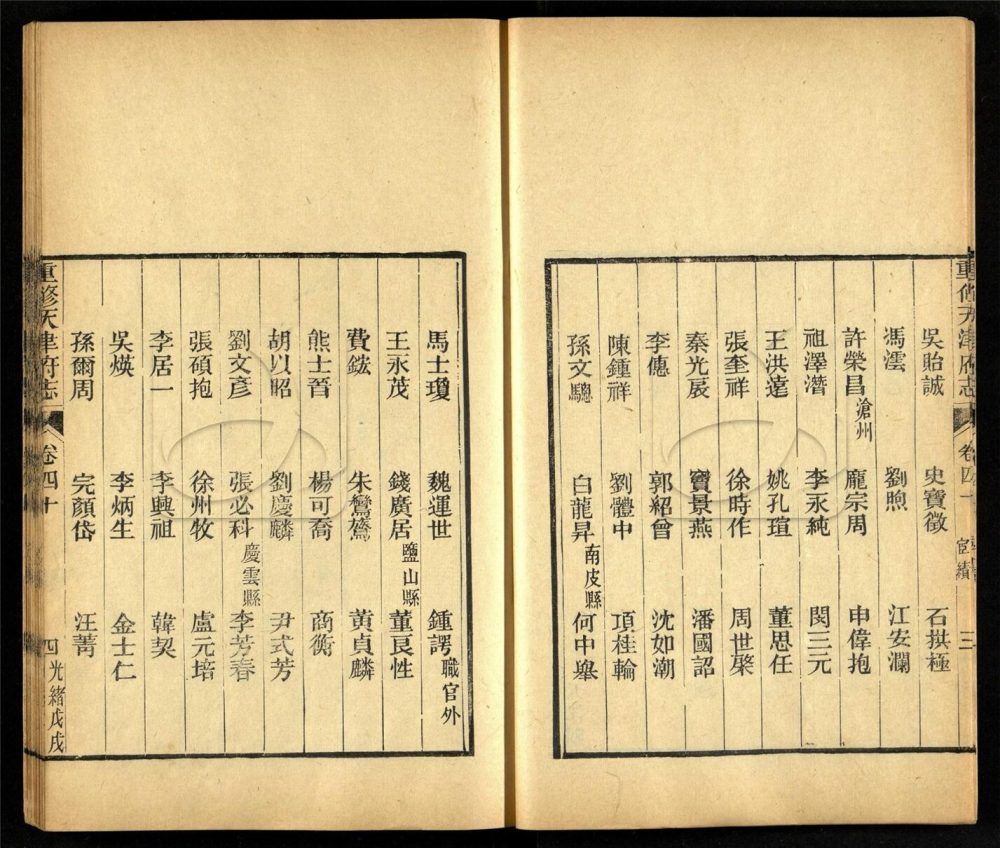 重修天津府志 卷四十 宦績 三
吳貽誠 史寶徵 石拱極
馮澐 劉煦 江安瀾
許榮昌滄州 龐宗周 申偉抱
祖澤潛 李永純 閔三元
王洪建 姚孔瑄 董思任
張奎祥 徐時作 周世棨
秦光辰 竇景燕 潘國詔
李僡 郭紹曾 沈如潮
陳鍾祥 劉體中 項桂輪
孫文驄 白龍昇南皮縣 何中舉
馬士瓊 魏運世 鍾諤職官外
王永茂 錢廣居鹽山縣 董良性
費鋐 朱鸞鷟 黃貞麟
熊士晉 楊可裔 商衡
胡以昭 劉慶麟 尹式芳
劉文彥 張必科慶雲縣 李芳春
張碩抱 徐州牧 盧元培
李居一 李興祖 韓契
吳煐 李炳生 金士仁
孫爾周 完顏岱 汪菁
重修天津府志 卷四十 四 光緒戊戌